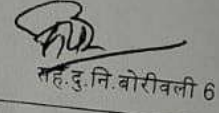 सह.दु.नि.बोरीवली 6